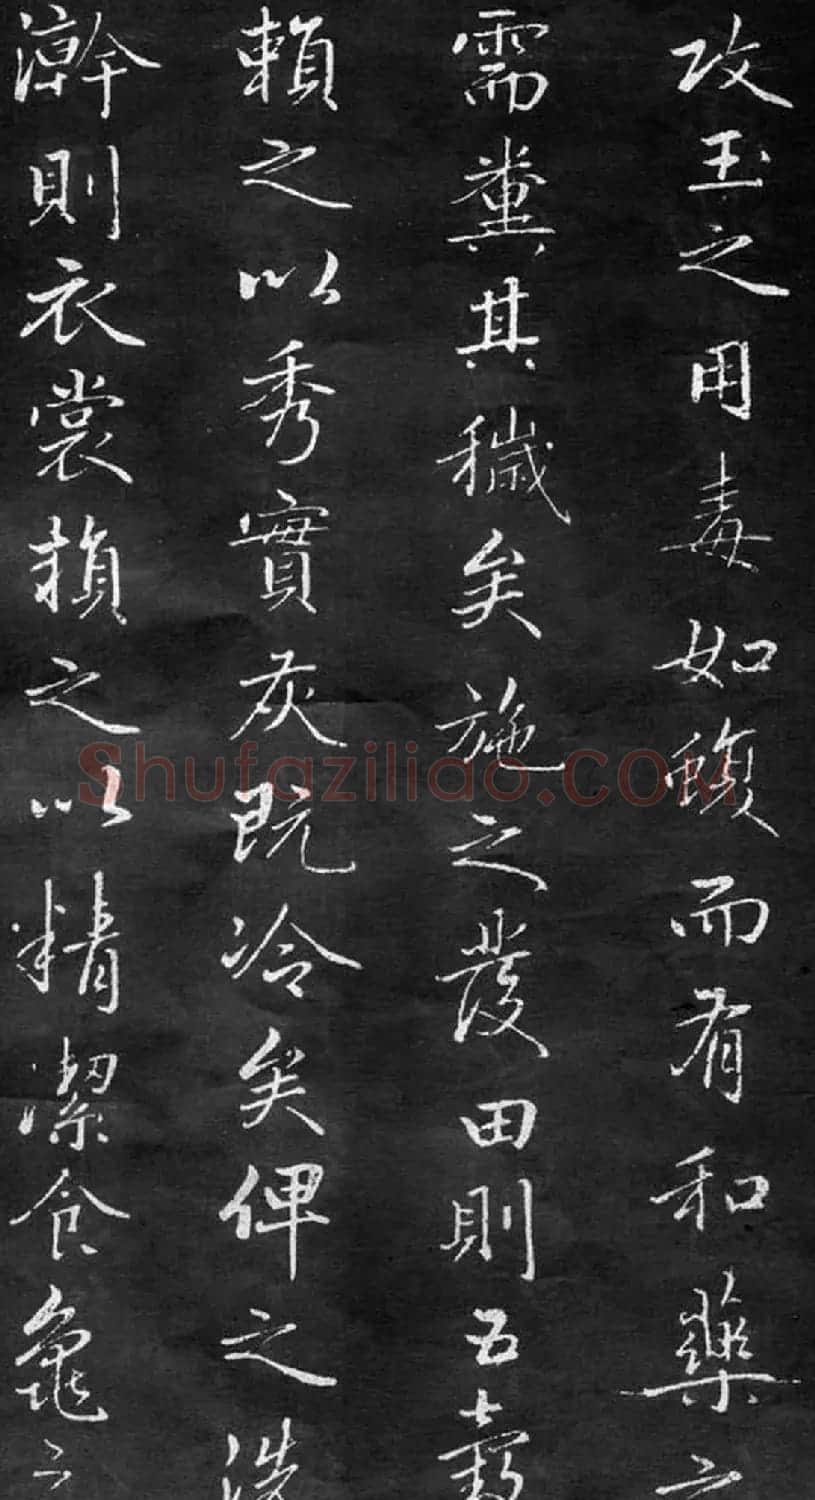 攻玉之用毒如蝮而有和藥之
需糞其穢矣施之發田則五穀
賴之以秀實灰既冷矣俾之洗
澣則衣裳賴之以精潔食龜之
Shufaziliao.COM